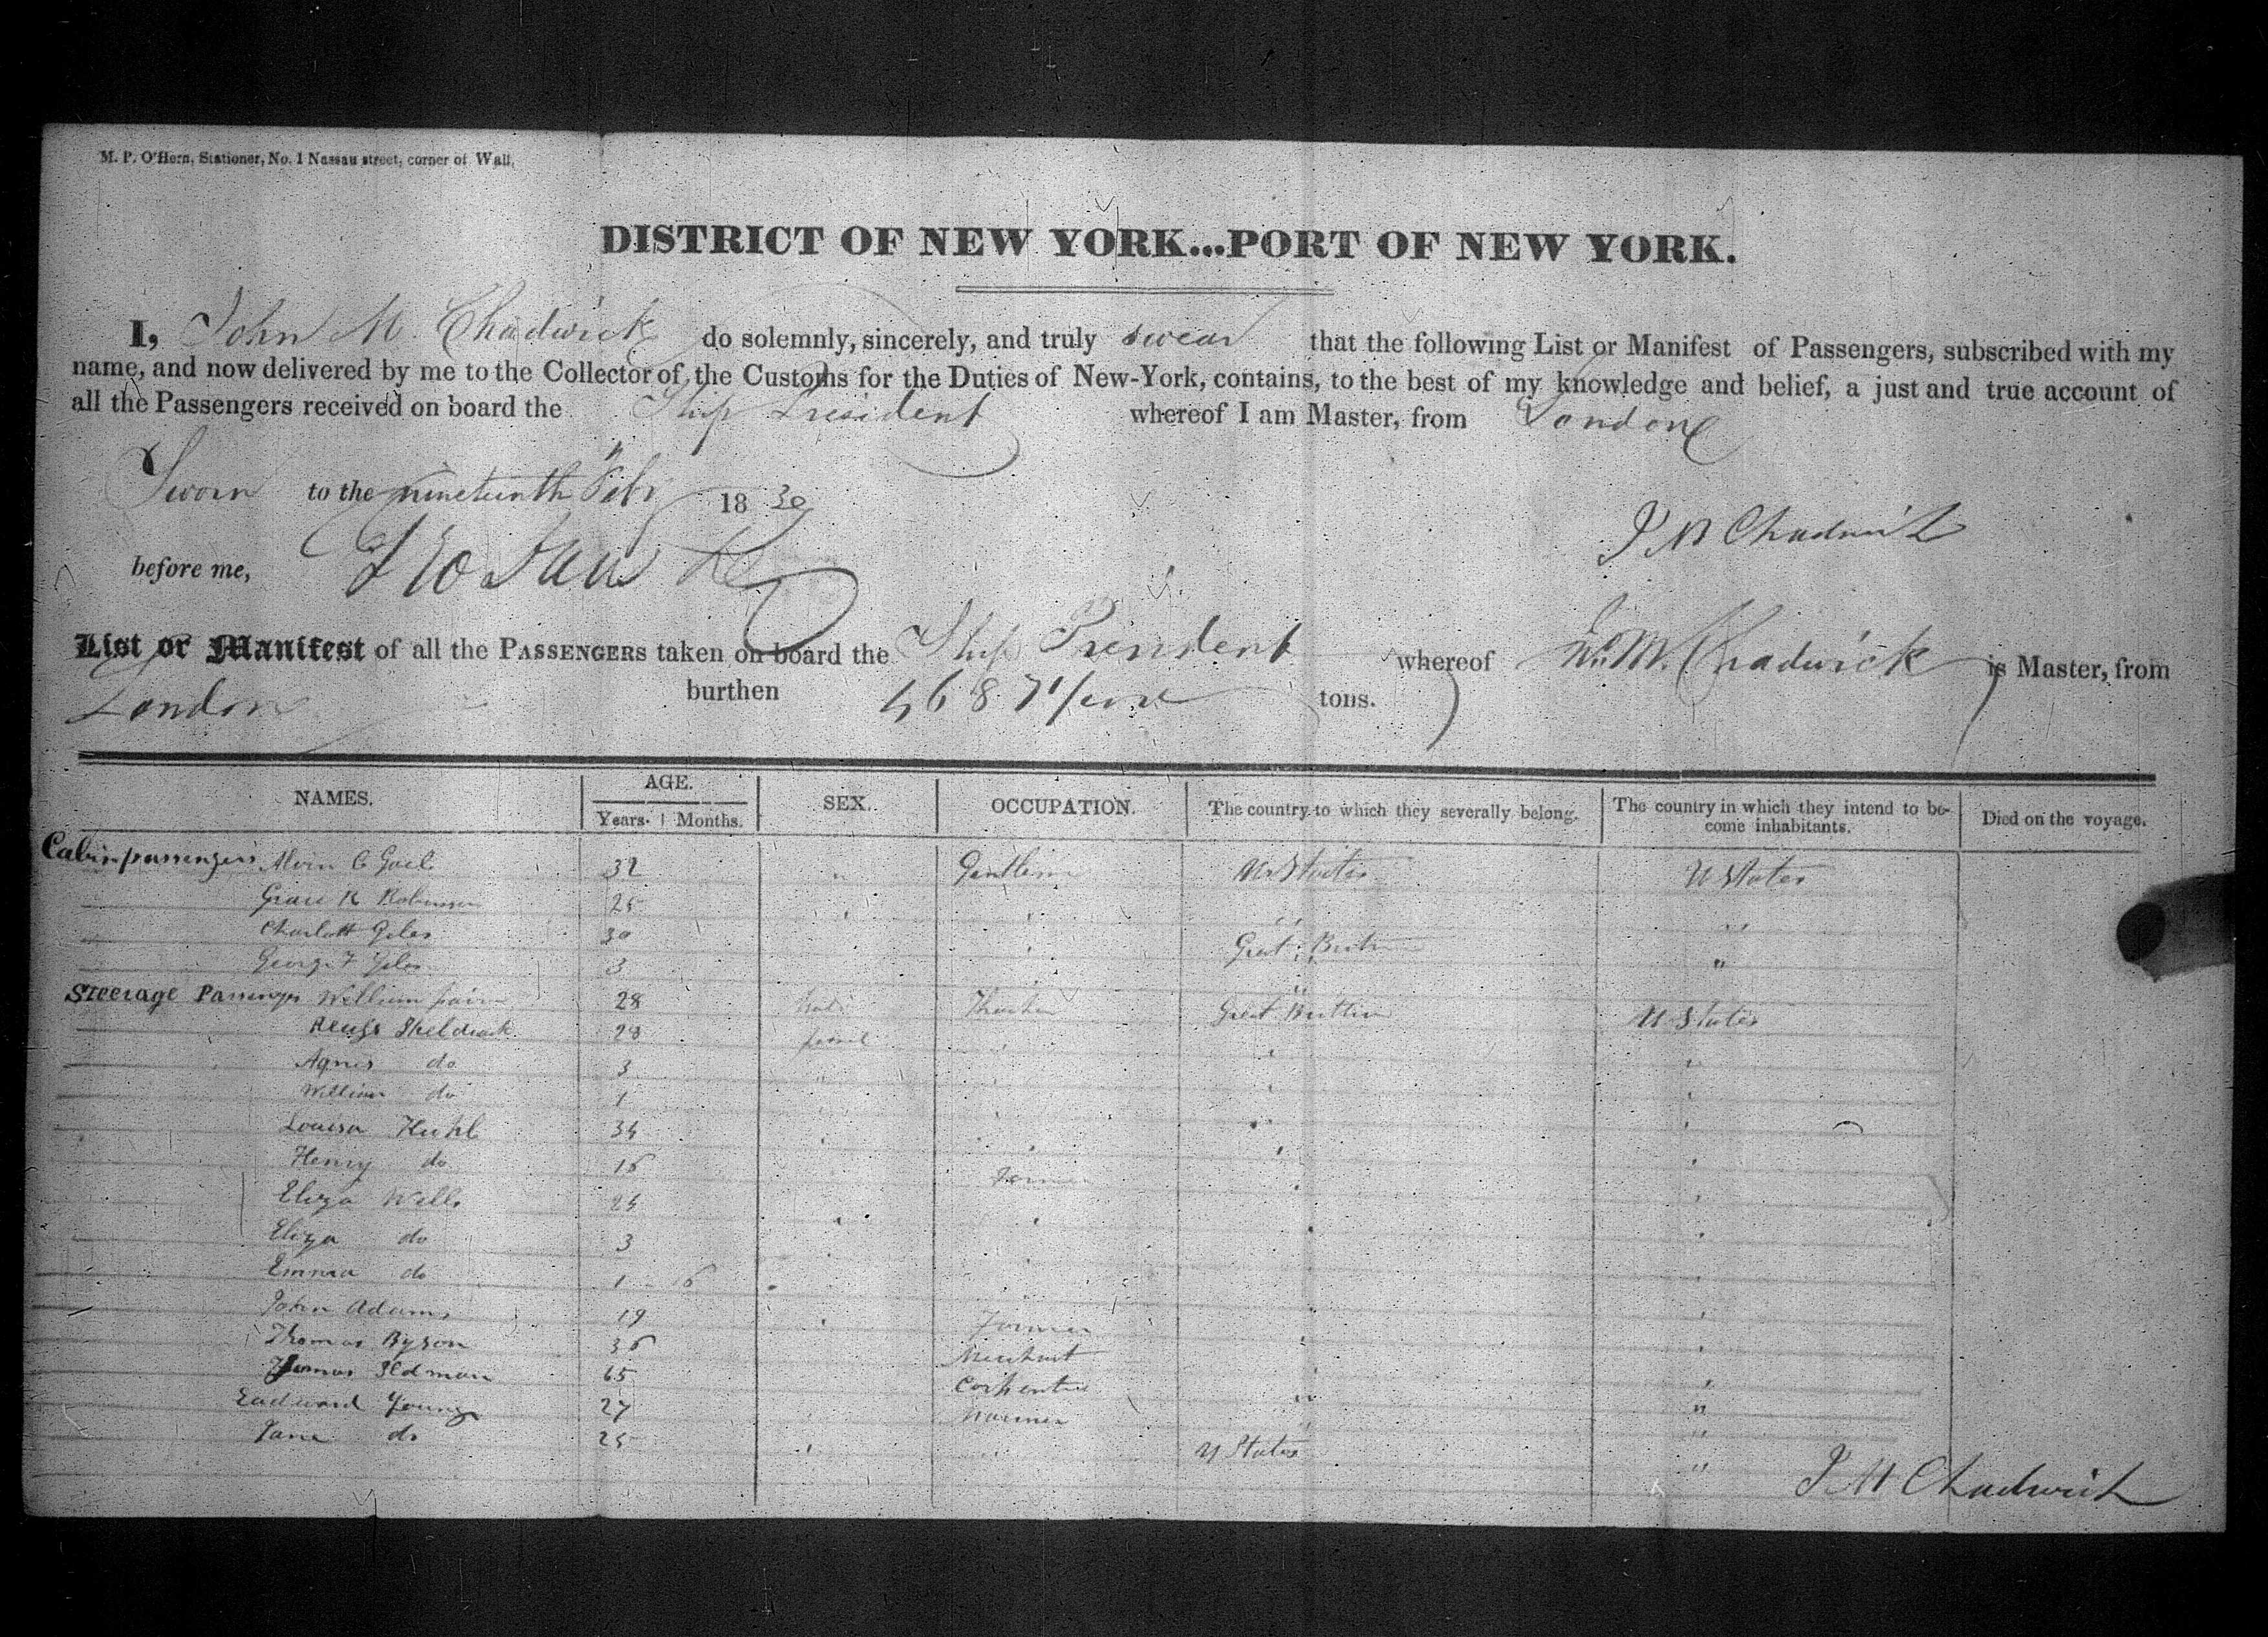 M. P. O'Hern, Stationer, No. 1 Nassau street, corner of Wall,
DISTRICT OF NEW YORK...PORT OF NEW YORK.
I, John M. Chadwick do solemnly, sincerely, and truly swear that the following List or Manifest of Passengers, subscribed with my
name, and now delivered by me to the Collector of the Customs for the Duties of New-York, contains, to the best of my knowledge and belief, a just and true account of
all the Passengers received on board the Ship President whereof I am Master, from London
Sworn to the nineteenth Feby 1830
before me,
J M Chadwick
List or Manifest of all the PASSENGERS taken on board the Ship President whereof M. Chadwick is Master, from
London burthen 468 7/ tons.
NAMES. AGE. Years. Months. SEX. OCCUPATION. The country to which they severally belong. The country in which they intend to become inhabitants. Died on the voyage.
Cabin passengers 32 " U States U States
Grace R Robinson 25 " " " "
Charlott Giles 30 " Great "
George F Giles 3 " "
Steerage Passengers William 28 Great U States
Sheldrack 28
Agnes do 3
William do 1
Louisa 34
Henry do 16
Eliza Wells 24
Eliza do 3
Emma do 1 6
John Adams 19 Farmer
Thomas Byson 36 Merchant "
65 "
Eadward Young 27 " "
Jane do 25 U States "
J M Chadwick